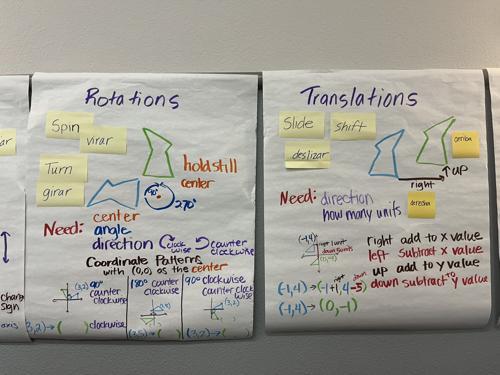 Rotations
Spin
virar
Turn
girar
hold still
center
90°
270°
Need: center
angle
direction clock wise counter clockwise
Coordinate Patterns
with (0,0) as the center
90° counter clockwise
180° counter clockwise
90° clockwise
(3,2)
(3,2)
(3,2)→( ) clockwise
Translations
Slide
shift
deslizar
arriba
up
right
Need: direction
how many units
derecha
(-1,4)
right 1 unit
down 5 units
(0,-1)
right add to x value
left subtract x value
up add to y value
down subtract to y value
(-1,4)→(-1+1,4-5)
right
down
(-1,4)→(0,-1)
ar
change
sign
axis